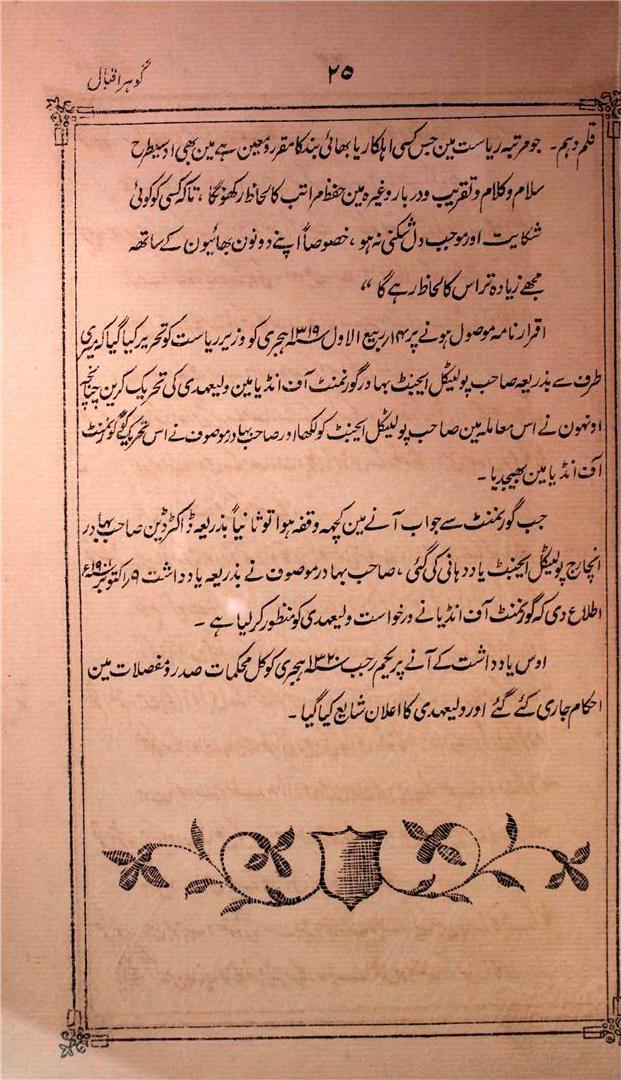 ۲۵
گوہر اقبال
قلم دہم - جو مرتبہ ریاست مین جس کسی اہلکار یا بھائی بند کا مقرر و معین ہے مین بھی اوسیطرح
سلام و کلام و تقریب و دربار وغیرہ مین حفظ مراتب کا لحاظ رکھونگا ، تاکہ کسی کو کوئی
شکایت اور موجب دل شکنی نہ ہو ، خصوصاً اپنے دونون بھائیون کے ساتھہ
مجھے زیادہ تر اس کا لحاظ رہے گا “
اقرار نامہ موصول ہونے پر ۱۴ ربیع الاول سنہ ۱۳۱۹ ہجری کو وزیر ریاست کو تحریر کیا گیا کہ میری
طرف سے بذریعہ صاحب پولیٹکل ایجنٹ بہادر گورنمنٹ آف انڈیا مین ولیعہدی کی تحریک کرین چنانچہ
اونہون نے اس معاملہ مین صاحب پولیٹکل ایجنٹ کو لکھا اور صاحب بہادر موصوف نے اس تحریک کو گورنمنٹ
آف انڈیا مین بھیجدیا -
جب گورنمنٹ سے جواب آنے مین کچہہ وقفہ ہوا تو ثانیاً بذریعہ ڈاکٹر ڈین صاحب بہادر
انچارج پولیٹکل ایجنٹ یاد دہانی کی گئی ، صاحب بہادر موصوف نے بذریعہ یادداشت ۹ اکتوبر
اطلاع دی کہ گورنمنٹ آف انڈیا نے درخواست ولیعہدی کو منظور کر لیا ہے -
اوس یادداشت کے آنے پر یکم رجب سنہ ۱۳۲۰ ہجری کو کل محکمات صدر و مفصلات مین
احکام جاری کئے گئے اور ولیعہدی کا اعلان شایع کیا گیا -